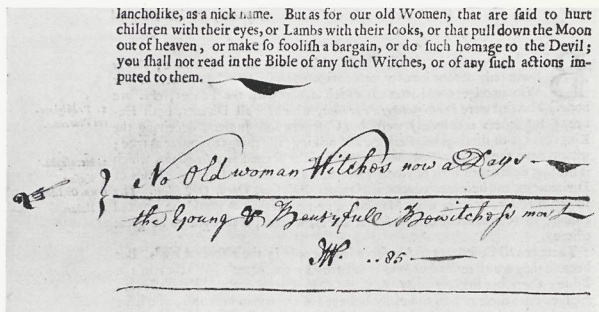 lancholike, as a nick name. But as for our old Women, that are ſaid to hurt
children with their eyes, or Lambs with their looks, or that pull down the Moon
out of heaven, or make ſo fooliſh a bargain, or do ſuch homage to the Devil;
you ſhall not read in the Bible of any ſuch Witches, or of any ſuch actions im-
puted to them.
No Old woman Witches now a Days
the Young & Beautyfull Bewitcheſs moſt
85